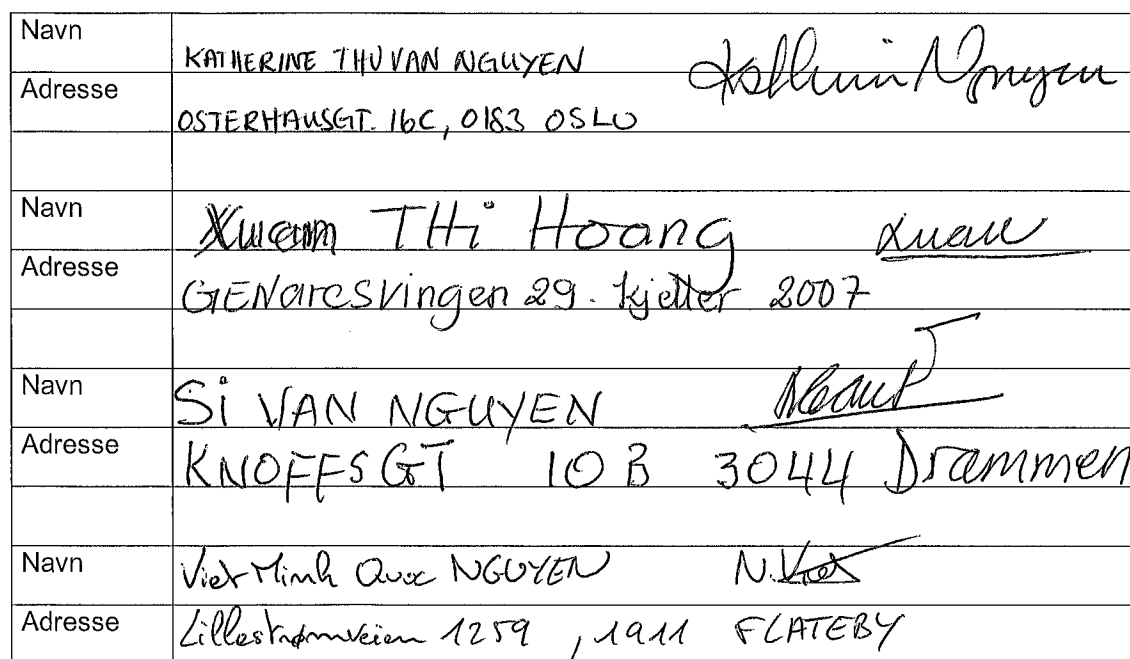 Navn KATHERINE THU VAN NGUYEN Kathrin Nguyen
Adresse OSTERHAUSGT. 16C, 0183 OSLO
Navn Xuan THi Hoang Xuan
Adresse GENaresvingen 29. Kjeller 2007
Navn Si VAN NGUYEN
Adresse KNOFFSGT 10 B 3044 Drammen
Navn Viet Minh Quoc NGUYEN N.Viet
Adresse Lillestrømveien 1259 , 1911 FLATEBY